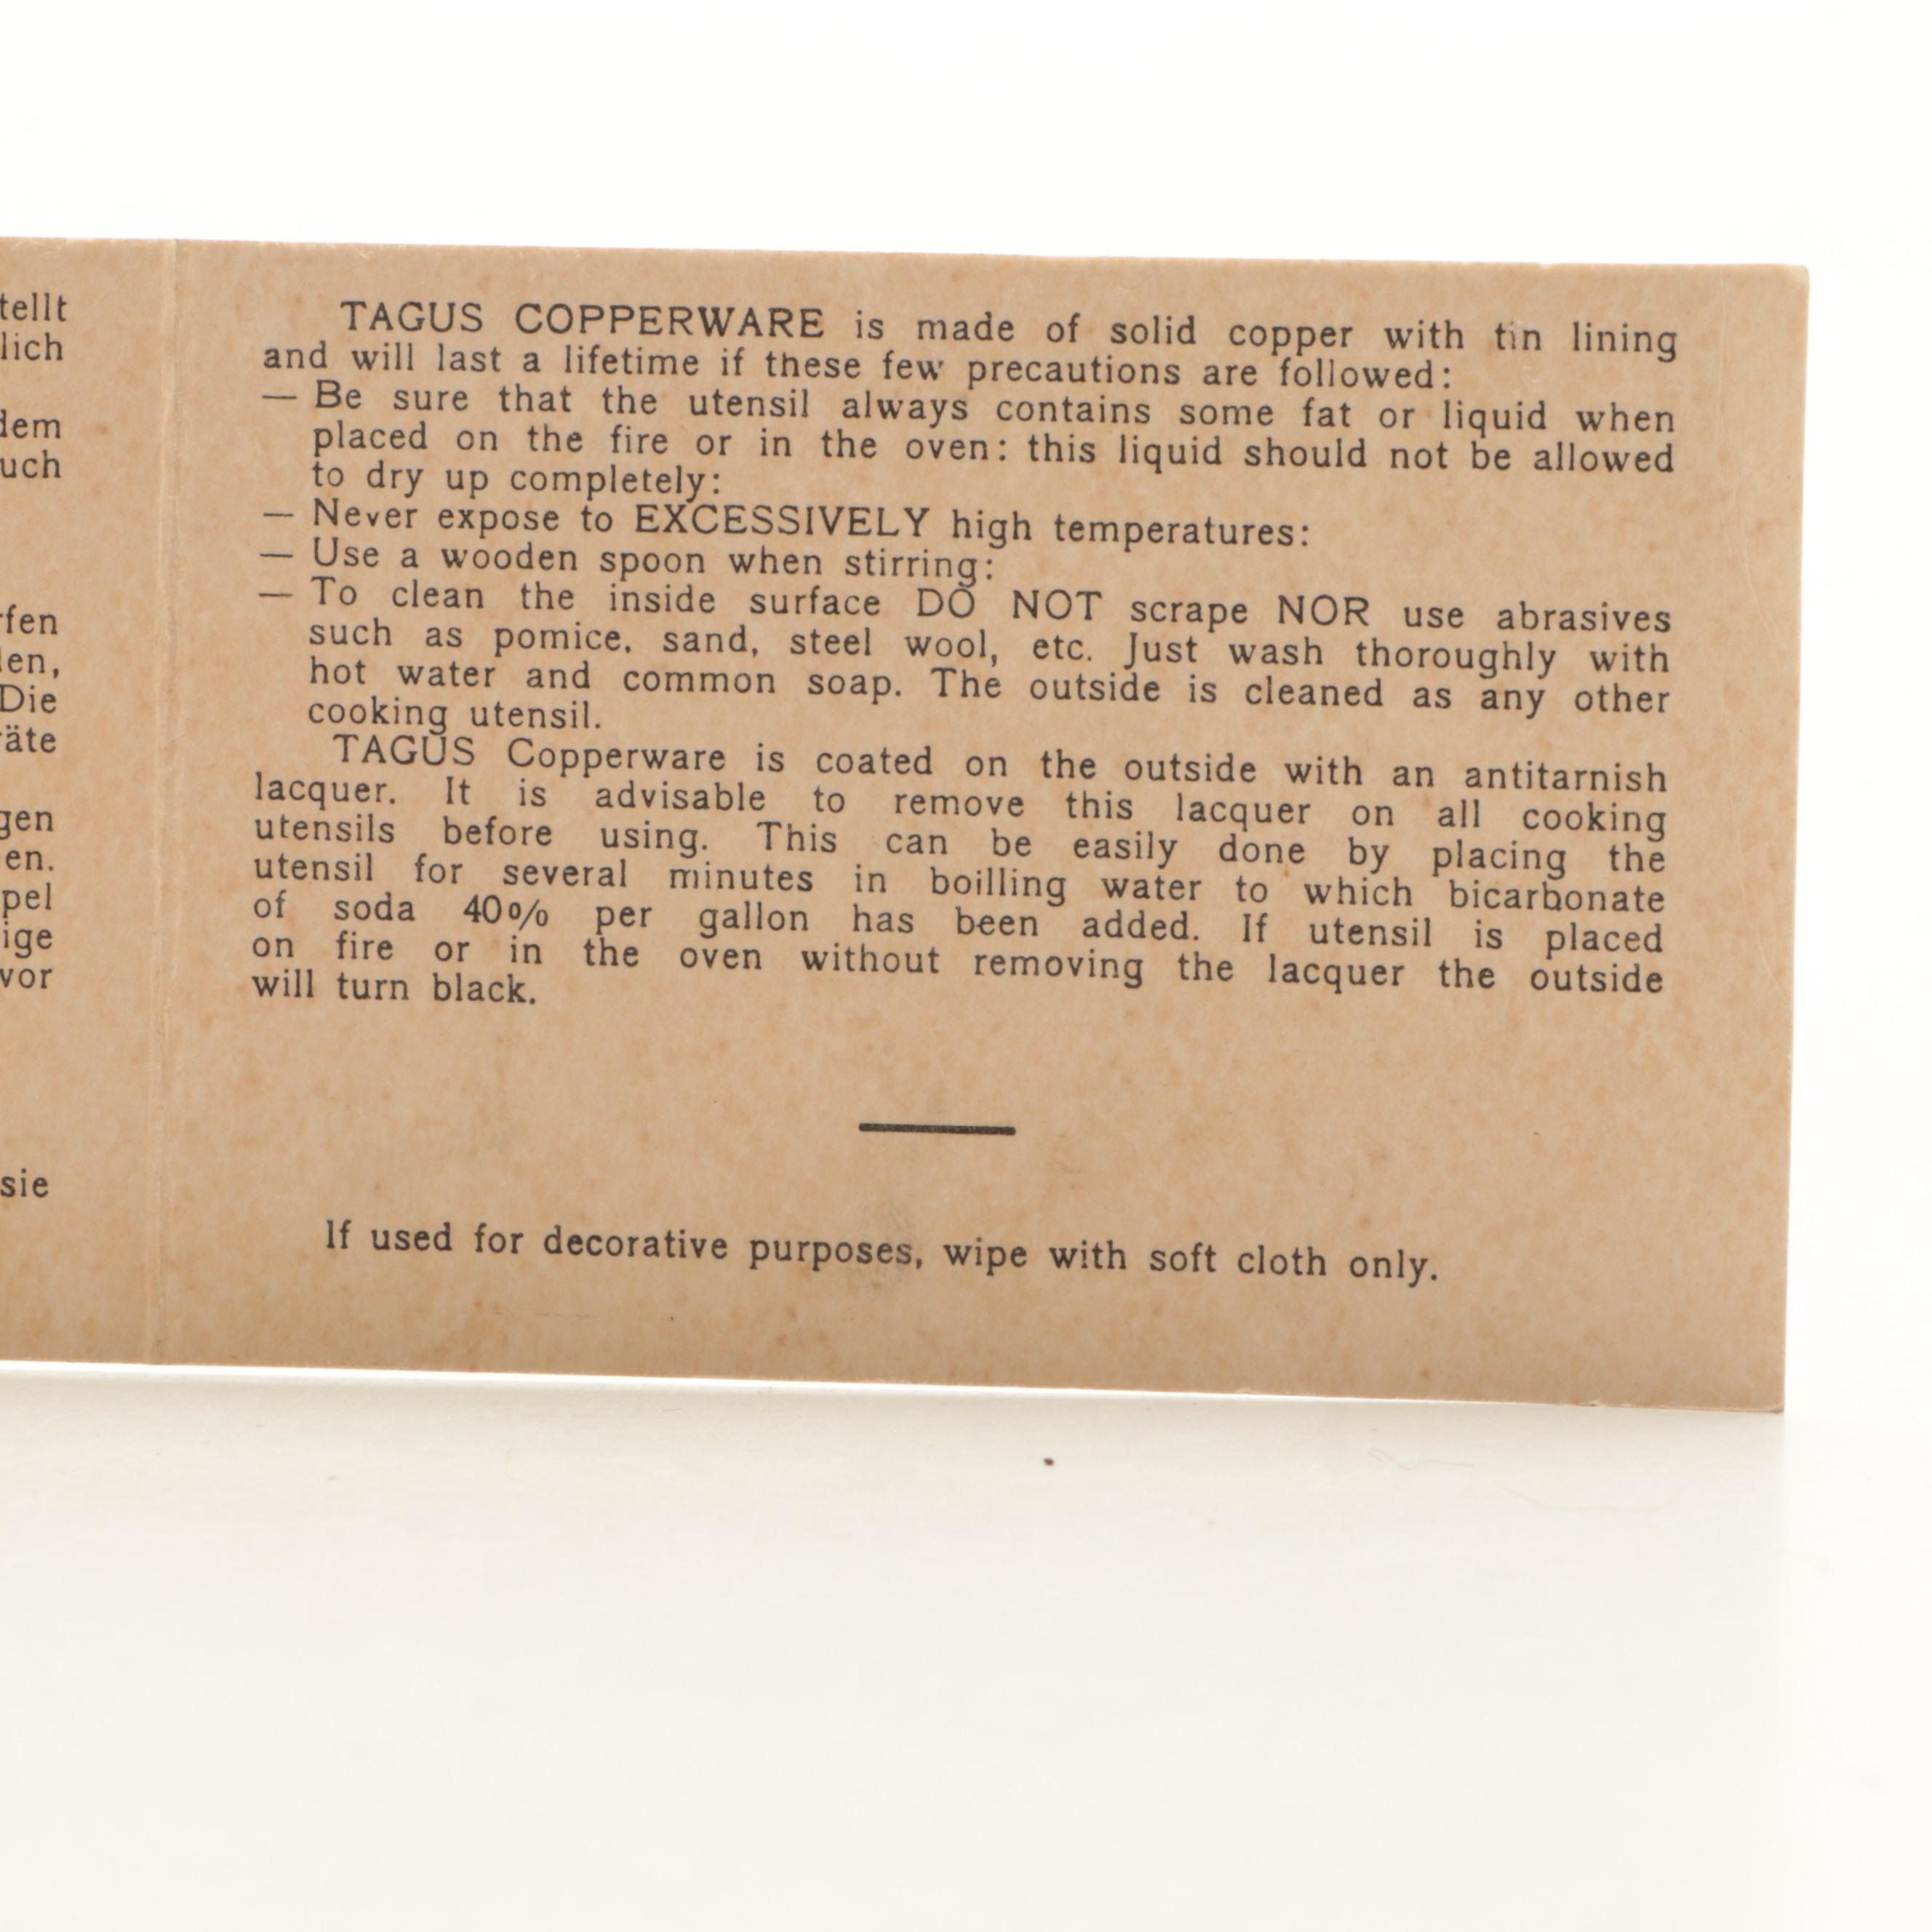 tellt
lich
dem
uch
rfen
len,
Die
räte
gen
en.
pel
ige
vor
sie
TAGUS COPPERWARE is made of solid copper with tin lining
and will last a lifetime if these few precautions are followed:
— Be sure that the utensil always contains some fat or liquid when
placed on the fire or in the oven: this liquid should not be allowed
to dry up completely:
— Never expose to EXCESSIVELY high temperatures:
— Use a wooden spoon when stirring:
— To clean the inside surface DO NOT scrape NOR use abrasives
such as pomice, sand, steel wool, etc. Just wash thoroughly with
hot water and common soap. The outside is cleaned as any other
cooking utensil.
TAGUS Copperware is coated on the outside with an antitarnish
lacquer. It is advisable to remove this lacquer on all cooking
utensils before using. This can be easily done by placing the
utensil for several minutes in boilling water to which bicarbonate
of soda 40% per gallon has been added. If utensil is placed
on fire or in the oven without removing the lacquer the outside
will turn black.
If used for decorative purposes, wipe with soft cloth only.